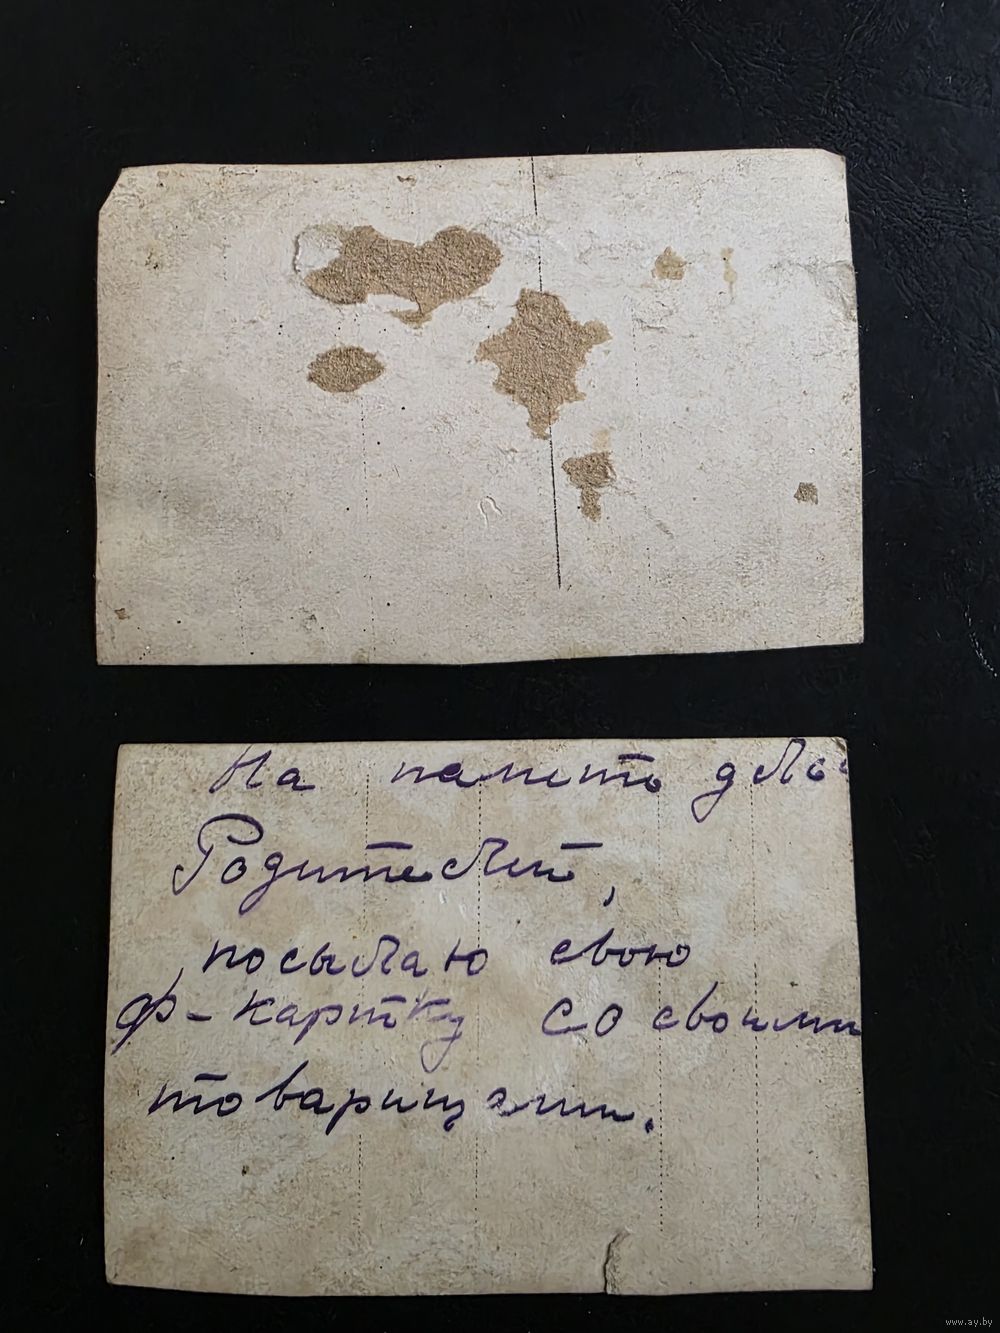 На паметь для
Родителей,
посылаю свою
ф-картку со своими
товарищами.
www.ay.by